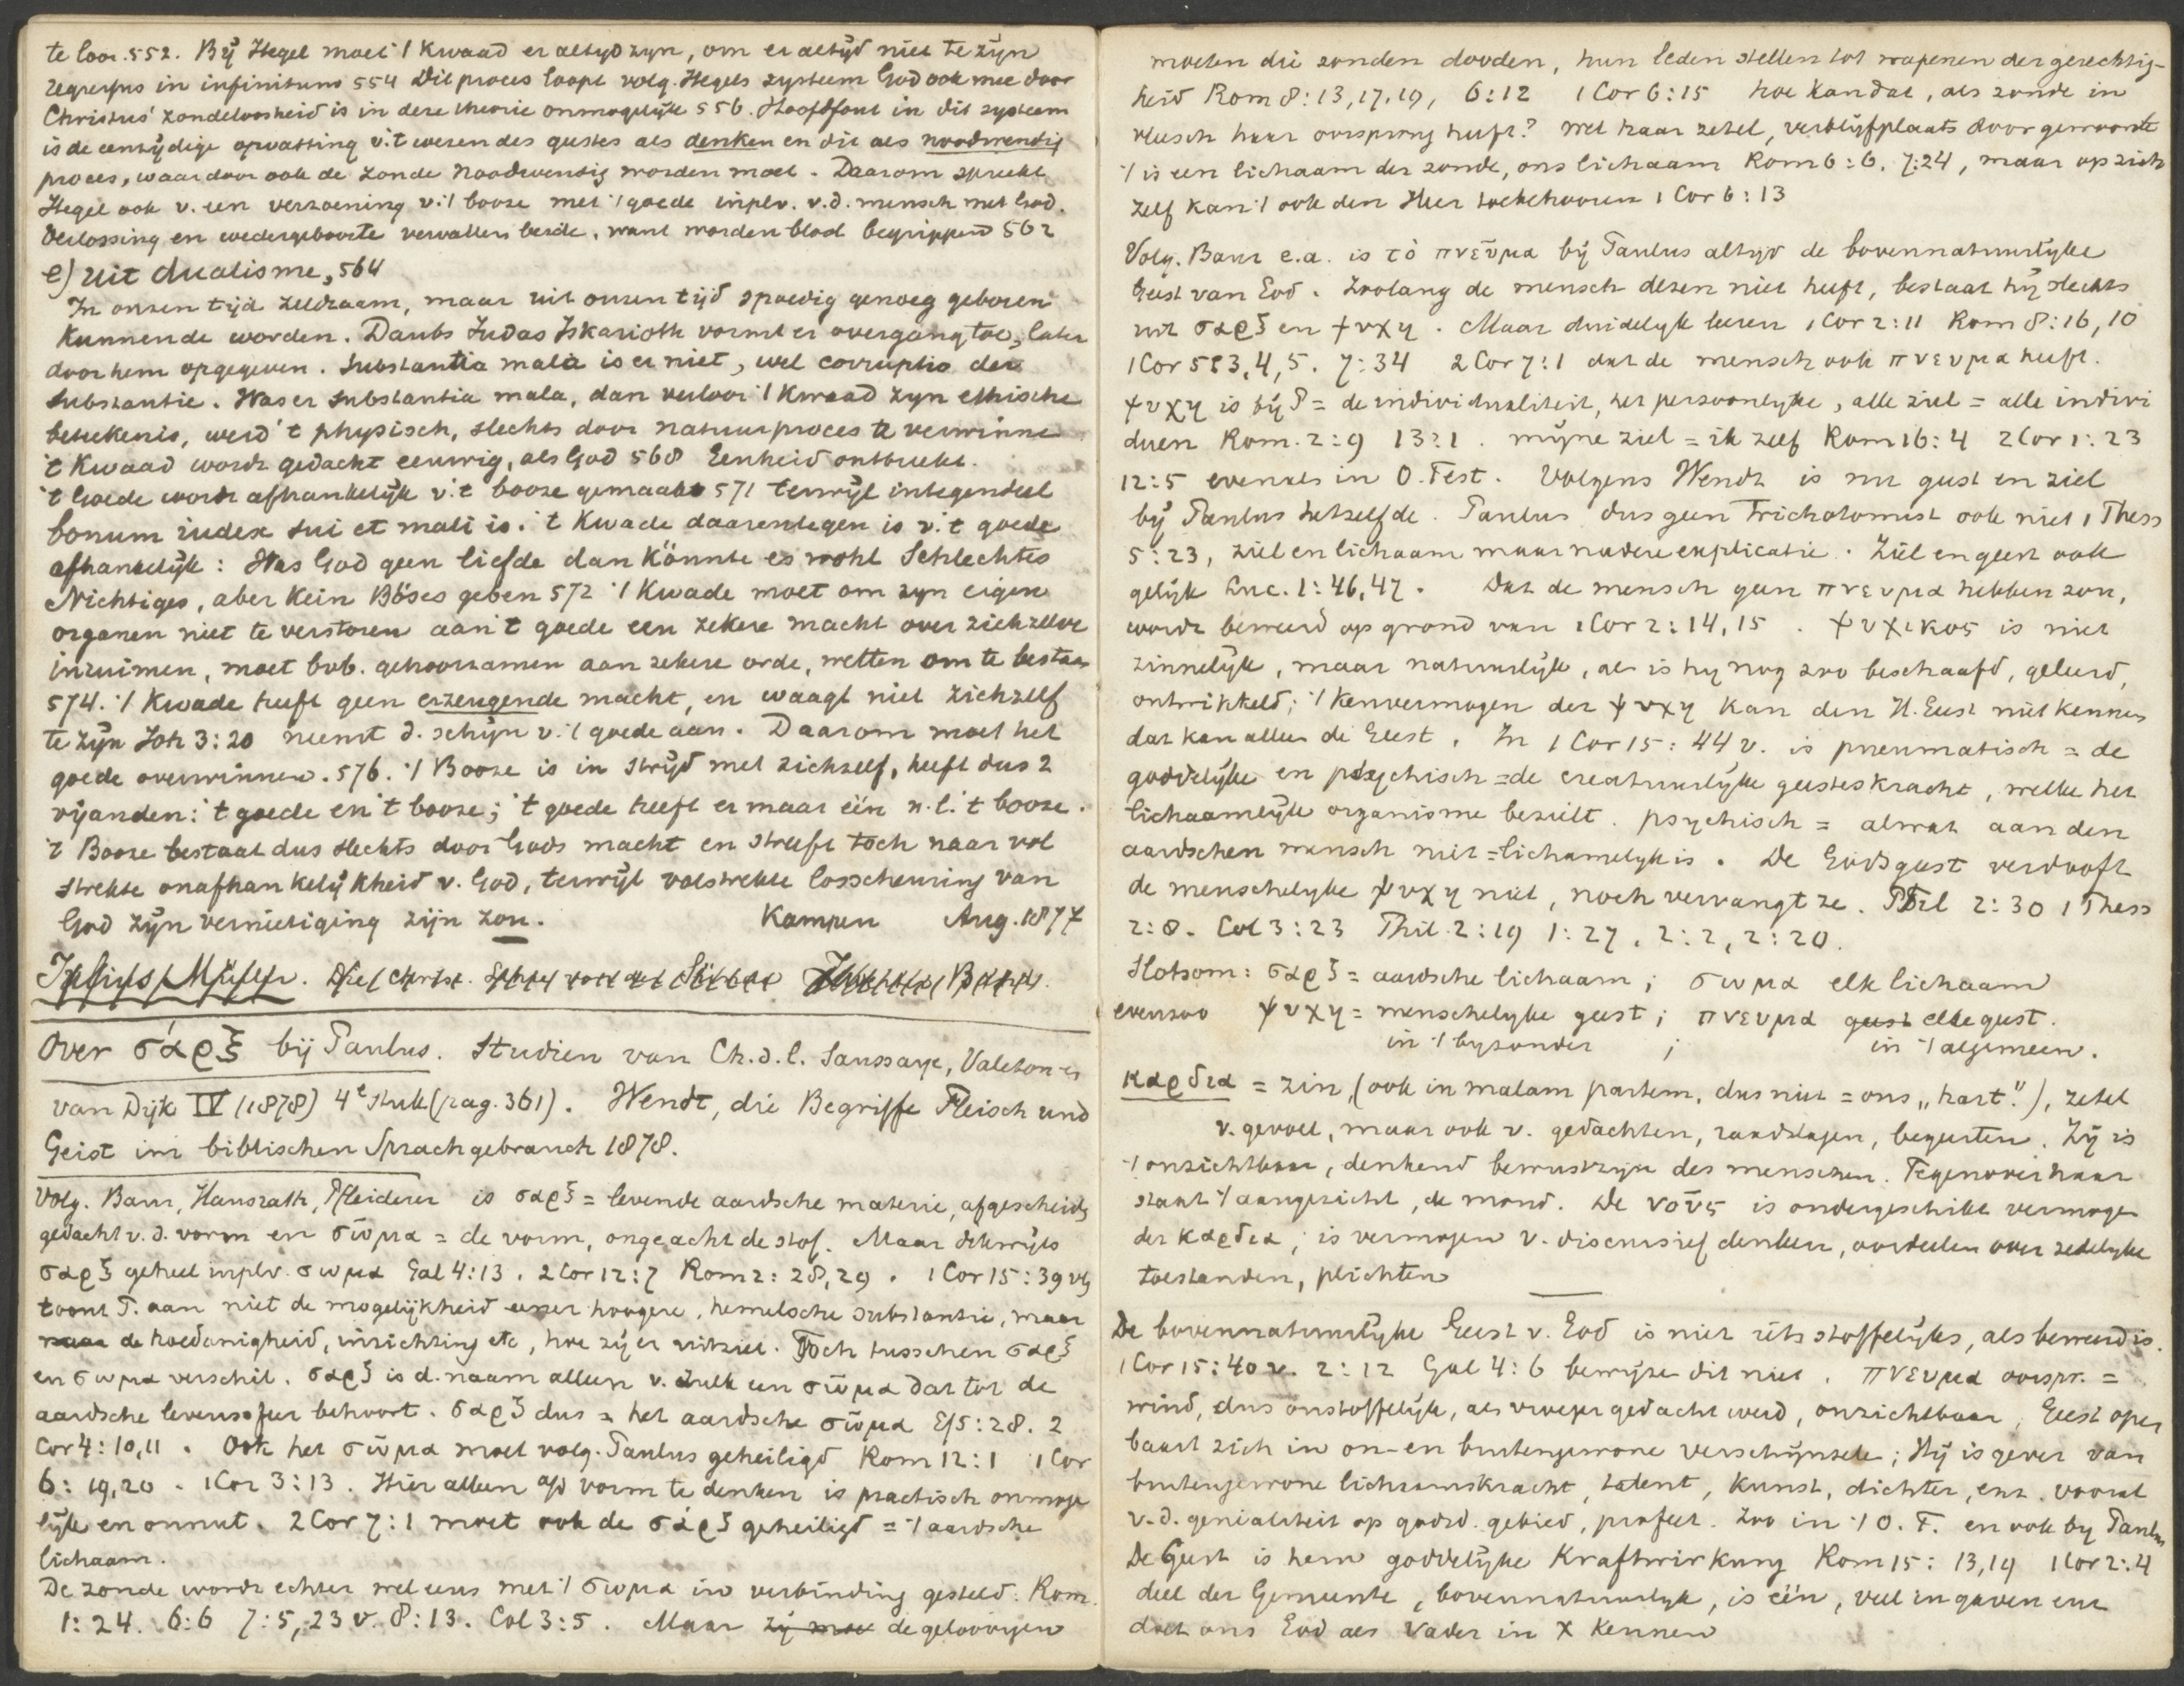 te loor. 552. Bij Hegel moet 't Kwaad er altijd zijn, om er altijd niet te zijn
regressus in infinitum 554 Dit proces loopt volg. Hegels systeem God ook mee door
Christus' zondeloosheid is in deze theorie onmogelijk 556. Hoofdfout in dit systeem
is de eenzijdige opvatting v.'t wezen des geestes als denken en die als noodwendig
proces, waardoor ook de zonde noodwendig worden moet. Daarom spreekt
Hegel ook v. een verzoening v.'t booze met 't goede inplv. v.d. mensch met God.
Verlossing en wedergeboorte vervallen beide, want worden bloot begrippen 562
e) uit dualisme, 564
In onzen tijd zeldzaam, maar uit onzen tijd spoedig genoeg geboren
kunnende worden. Daubs Judas Iskarioth vormt er overgang toe, later
door hem opgegeven. Substantia mala is er niet, wel corruptio der
substantie. Was er substantia mala, dan verloor 't Kwaad zijn ethische
betekenis, werd 't physisch, slechts door natuurproces te verwinnen
't Kwaad wordt gedacht eeuwig, als God 568 Eenheid ontbreekt.
't Goede wordt afhankelijk v.'t booze gemaakt 571 terwijl integendeel
bonum index sui et mali is. 't Kwade daarentegen is v.'t goede
afhankelijk: Was God geen liefde dan könnte es wohl Schlechtes
Nichtiges, aber kein Böses geben 572 't Kwade moet om zijn eigen
organen niet te verstoren aan 't goede een zekere macht over zichzelve
inruimen, moet bvb. gehoorzamen aan zekere orde, wetten om te bestaan
574. 't Kwade heeft geen erzeugende macht, en waagt niet zichzelf
te zijn Joh 3:20 neemt d. schijn v.'t goede aan. Daarom moet het
goede overwinnen. 576. 't Booze is in strijd met zichzelf, heeft dus 2
vijanden: 't goede en 't booze; 't goede heeft er maar één n.l. 't booze.
't Booze bestaat dus slechts door Gods macht en streeft toch naar vol
strekte onafhankelijkheid v. God, terwijl volstrekte losscheuring van
God zijn vernietiging zijn zou. Kampen Aug. 1877
Julius Müller. Die christ. Lehre von der Sünde
Over σάρξ bij Paulus. Studien van Ch. d. l. Saussaye, Valeton en
van Dijk IV (1878) 4e stuk (pag. 361). Wendt, die Begriffe Fleisch und
Geist im biblischen Sprachgebrauch 1878.
Volg. Baur, Hausrath, Pfleiderer is σαρξ = levende aardsche materie, afgescheiden
gedacht v.d. vorm en σῶμα = de vorm, ongeacht de stof. Maar dikwijls
σαρξ geheel inplv. σωμα Gal 4:13. 2 Cor 12:7 Rom 2:28,29. 1 Cor 15:39 vlg
toont P. aan niet de mogelijkheid eener hoogere, hemelsche substantie, maar
maar de hoedanigheid, inrichting etc, hoe zij er uitziet. Toch tusschen σαρξ
en σωμα verschil. σαρξ is d. naam alleen v. zulk een σῶμα dat tot de
aardsche levenssfeer behoort. σαρξ dus = het aardsche σῶμα Ef 5:28. 2
Cor 4:10,11. Ook het σῶμα moet volg. Paulus geheiligd Rom 12:1 1 Cor
6:19,20. 1 Cor 3:13. Hier alleen a/d vorm te denken is practisch onmoge
lijk en onnut. 2 Cor 7:1 moet ook de σάρξ geheiligd = 't aardsche
lichaam.
De zonde wordt echter wel eens met 't σωμα in verbinding gesteld: Rom.
1:24. 6:6 7:5,23 v. 8:13. Col 3:5. Maar zij moet de geloovigen
moeten die zonden dooden, hun leden stellen tot wapenen der gerechtig-
heid Rom 8:13,17,19, 6:12 1 Cor 6:15 hoe kan dat, als zonde in
vleesch haar oorsprong heeft? Wel haar zetel, verblijfplaats door gewoonte
't is een lichaam der zonde, ons lichaam Rom 6:6. 7:24, maar op zich
zelf kan 't ook den Heer toebehooren 1 Cor 6:13
Volg. Baur e.a. is τὸ πνεῦμα bij Paulus altijd de bovennatuurlijke
Geest van God. Zoolang de mensch dezen niet heeft, bestaat hij slechts
uit σαρξ en ψυχη. Maar duidelijk leeren 1 Cor 2:11 Rom 8:16,10
1 Cor 5:3,4,5. 7:34 2 Cor 7:1 dat de mensch ook πνευμα heeft.
ψυχη is bij P = de individualiteit, het persoonlijke, alle ziel = alle indivi
duen Rom. 2:9 13:1. mijne ziel = ik zelf Rom 16:4 2 Cor 1:23
12:5 evenals in O. Test. Volgens Wendt is nu geest en ziel
bij Paulus hetzelfde. Paulus dus geen Trichotomist ook niet 1 Thess
5:23, ziel en lichaam maar nadere explicatie. Ziel en geest ook
gelijk Luc. 1:46,47. Dat de mensch geen πνευμα hebben zou,
wordt beweerd op grond van 1 Cor 2:14,15. ψυχικος is niet
zinnelijk, maar natuurlijk, al is hij nog zoo beschaafd, geleerd,
ontwikkeld; 't kenvermogen der ψυχη kan den H. Geest niet kennen
dat kan alleen de Geest. In 1 Cor 15:44 v. is pneumatisch = de
goddelijke en psychisch = de creatuurlijke geesteskracht, welke het
lichaamlijk organisme bezielt. psychisch = alwat aan den
aardschen mensch niet = lichamelijk is. De Godsgeest verdooft
de menschelijke ψυχη niet, noch vervangt ze. Phil 2:30 1 Thess
2:8. Col 3:23 Phil. 2:19 1:27, 2:2, 2:20.
Slotsom: σαρξ = aardsche lichaam; σωμα elk lichaam
evenzoo ψυχη = menschelijke geest; πνευμα geest elke geest.
in 't bijzonder ; in 't algemeen.
καρδια = zin, (ook in malam partem, dus niet = ons „hart"), zetel
v. gevoel, maar ook v. gedachten, raadslagen, begeerten. Zij is
't onzichtbaar, denkend bewustzijn des menschen. Tegenover haar
staat 't aangezicht, de mond. De νοῦς is ondergeschikt vermogen
der καρδια; is vermogen v. discursief denken, oordeelen over zedelijke
toestanden, plichten
De bovennatuurlijke Geest v. God is niet iets stoffelijks, als beweerd is.
1 Cor 15:40 v. 2:12 Gal 4:6 bewijzen dit niet. πνευμα oorspr. =
wind, dus onstoffelijk, als vroeger gedacht werd, onzichtbaar. Geest open
baart zich in on- en buitengewone verschijnselen; Hij is gever van
buitengewone lichaamskracht, talent, kunst, dichter, enz. vooral
v.d. genialiteit op godsd. gebied, profeet. Zoo in 't O. T. en ook bij Paulus
De Geest is hem goddelijke Kraftwirkung Rom 15:13,19 1 Cor 2:4
deel der Gemeente, bovennatuurlijk, is één, veel in gaven enz
doet ons God als Vader in X kennen